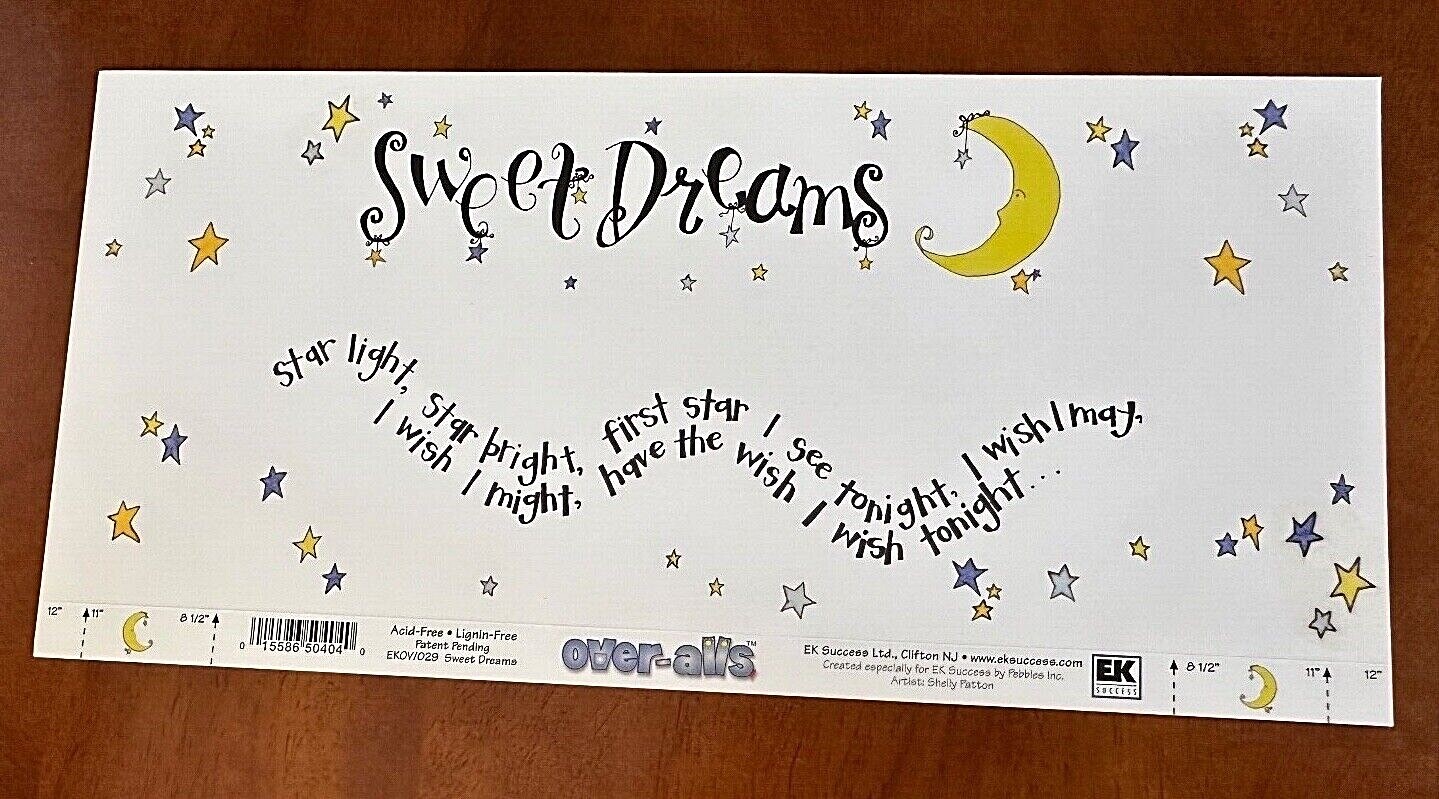 Sweet Dreams
star light, star bright, first star I see tonight, I wish I may,
I wish I might, have the wish I wish tonight...
12" 11" 8 1/2"
0 15586 50404 0
Acid-Free • Lignin-Free
Patent Pending
EKOV/029 Sweet Dreams
over-alls™
EK Success Ltd., Clifton NJ • www.eksuccess.com
Created especially for EK Success by Pebbles Inc.
Artist: Shelly Patton
EK
SUCCESS
8 1/2" 11" 12"